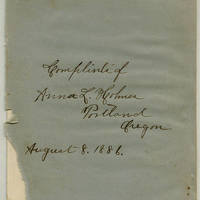 Complints of
Anna L. Holmes
Portland
Oregon
August 8. 1886.